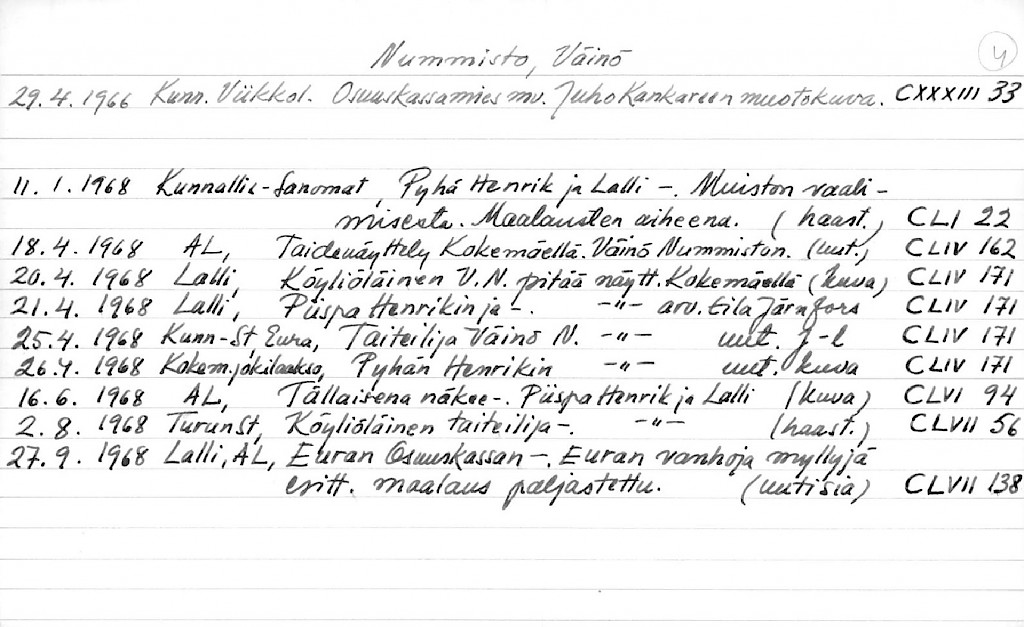 Nummisto, Väinö 4
29.4.1966 Kunn. Viikkol. Osuuskassamies mv. Juho Kankareen muotokuva. CXXXIII 33
11.1.1968 Kunnallis-Sanomat, Pyhä Henrik ja Lalli -. Muiston vaali-
misesta. Maalausten aiheena. (haast.) CLI 22
18.4.1968 AL, Taidenäyttely Kokemäellä. Väinö Nummiston. (uut.) CLIV 162
20.4.1968 Lalli, Köyliöläinen V.N. pitää näytt. Kokemäellä (kuva) CLIV 171
21.4.1968 Lalli, Piispa Henrikin ja -. -"- arv. Eila Järnfors CLIV 171
25.4.1968 Kunn-St, Eura, Taiteilija Väinö N. -"- uut. j-l CLIV 171
26.4.1968 Kokem.jokilaakso, Pyhän Henrikin -"- uut. kuva CLIV 171
16.6.1968 AL, Tällaisena näkee-. Piispa Henrik ja Lalli (kuva) CLVI 94
2.8.1968 TurunSt, Köyliöläinen taiteilija-. -"- (haast.) CLVII 56
27.9.1968 Lalli, AL, Euran Osuuskassan -. Euran vanhoja myllyjä
esitt. maalaus paljastettu. (uutisia) CLVII 138